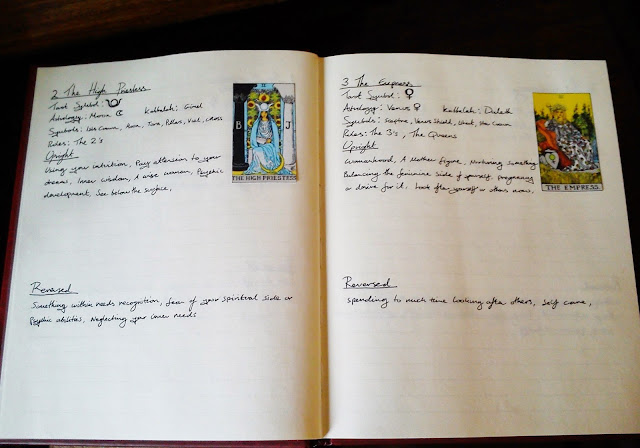 2 The High Priestess
Tarot Symbol:
Astrology: Moon ☾ Kabbalah: Gimel
Symbols: Isis Crown, Moon, Tora, Pillars, Veil, Cross
Rules: The 2's
Upright
Using your intuition, Pay attension to your
dreams, Inner wisdom, A wise woman, Psychic
development. See below the surface,
B J
THE HIGH PRIESTESS
Reversed
Something within needs recognition, fear of your spiritual side or
Psychic abilities, Neglecting your inner needs
3 The Empress
Tarot Symbol: ♀
Astrology: Venus ♀ Kabbalah: Daleth
Symbols: Sceptre, Venus Shield, Wheat, Star Crown
Rules: The 3's, The Queens
Upright
Womanhood, A Mother figure, Nurturing something
Balancing the feminine side of yourself, pregnancy
or desire for it. Look after yourself or others now,
THE EMPRESS.
Reversed
spending to much time looking after others, self care,